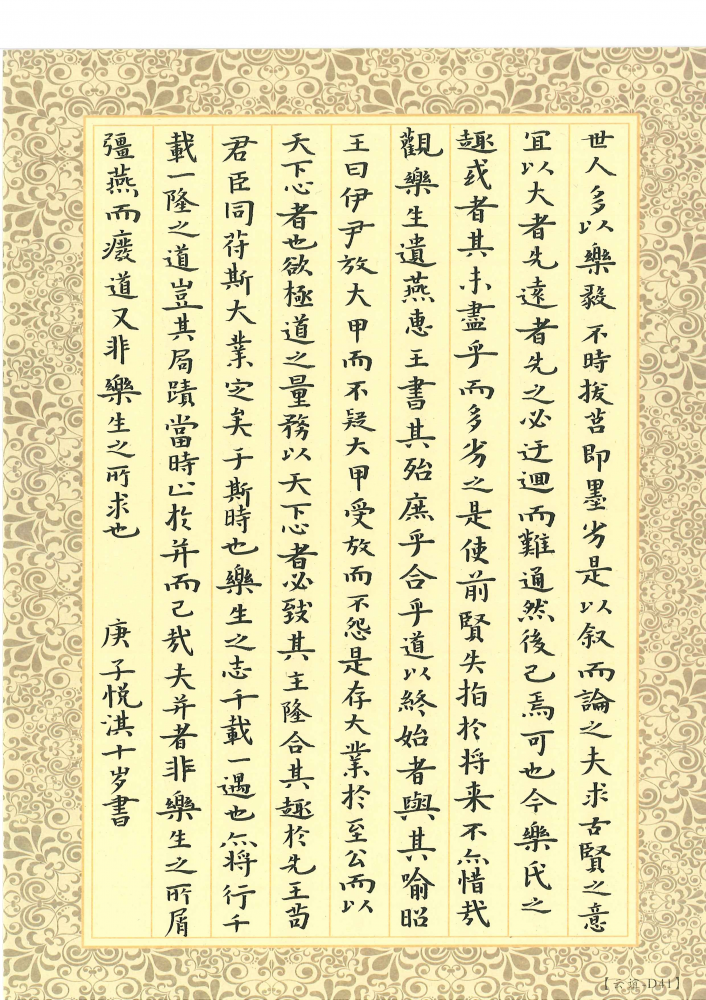 世人多以樂毅不時拔莒即墨劣是以叙而論之夫求古賢之意
冝以大者先遠者先之必迂迴而難通然後已焉可也今樂氏之
趣或者其未盡乎而多劣之是使前賢失指於将来不尒惜㢤
觀樂生遺燕惠王書其殆庶乎合乎道以終始者與其喻昭
王曰伊尹放大甲而不疑大甲受放而不怨是存大業於至公而以
天下心者也欲極道之量務以天下心者必致其主隆合其趣於先王苟
君臣同苻斯大業定矣于斯時也樂生之志千載一遇也尒将行千
載一隆之道豈其局蹟當時止於并而已㢤夫并者非樂生之所屑
彊燕而癈道又非樂生之所求也 庚子悦淇十岁書
【云道 D41】